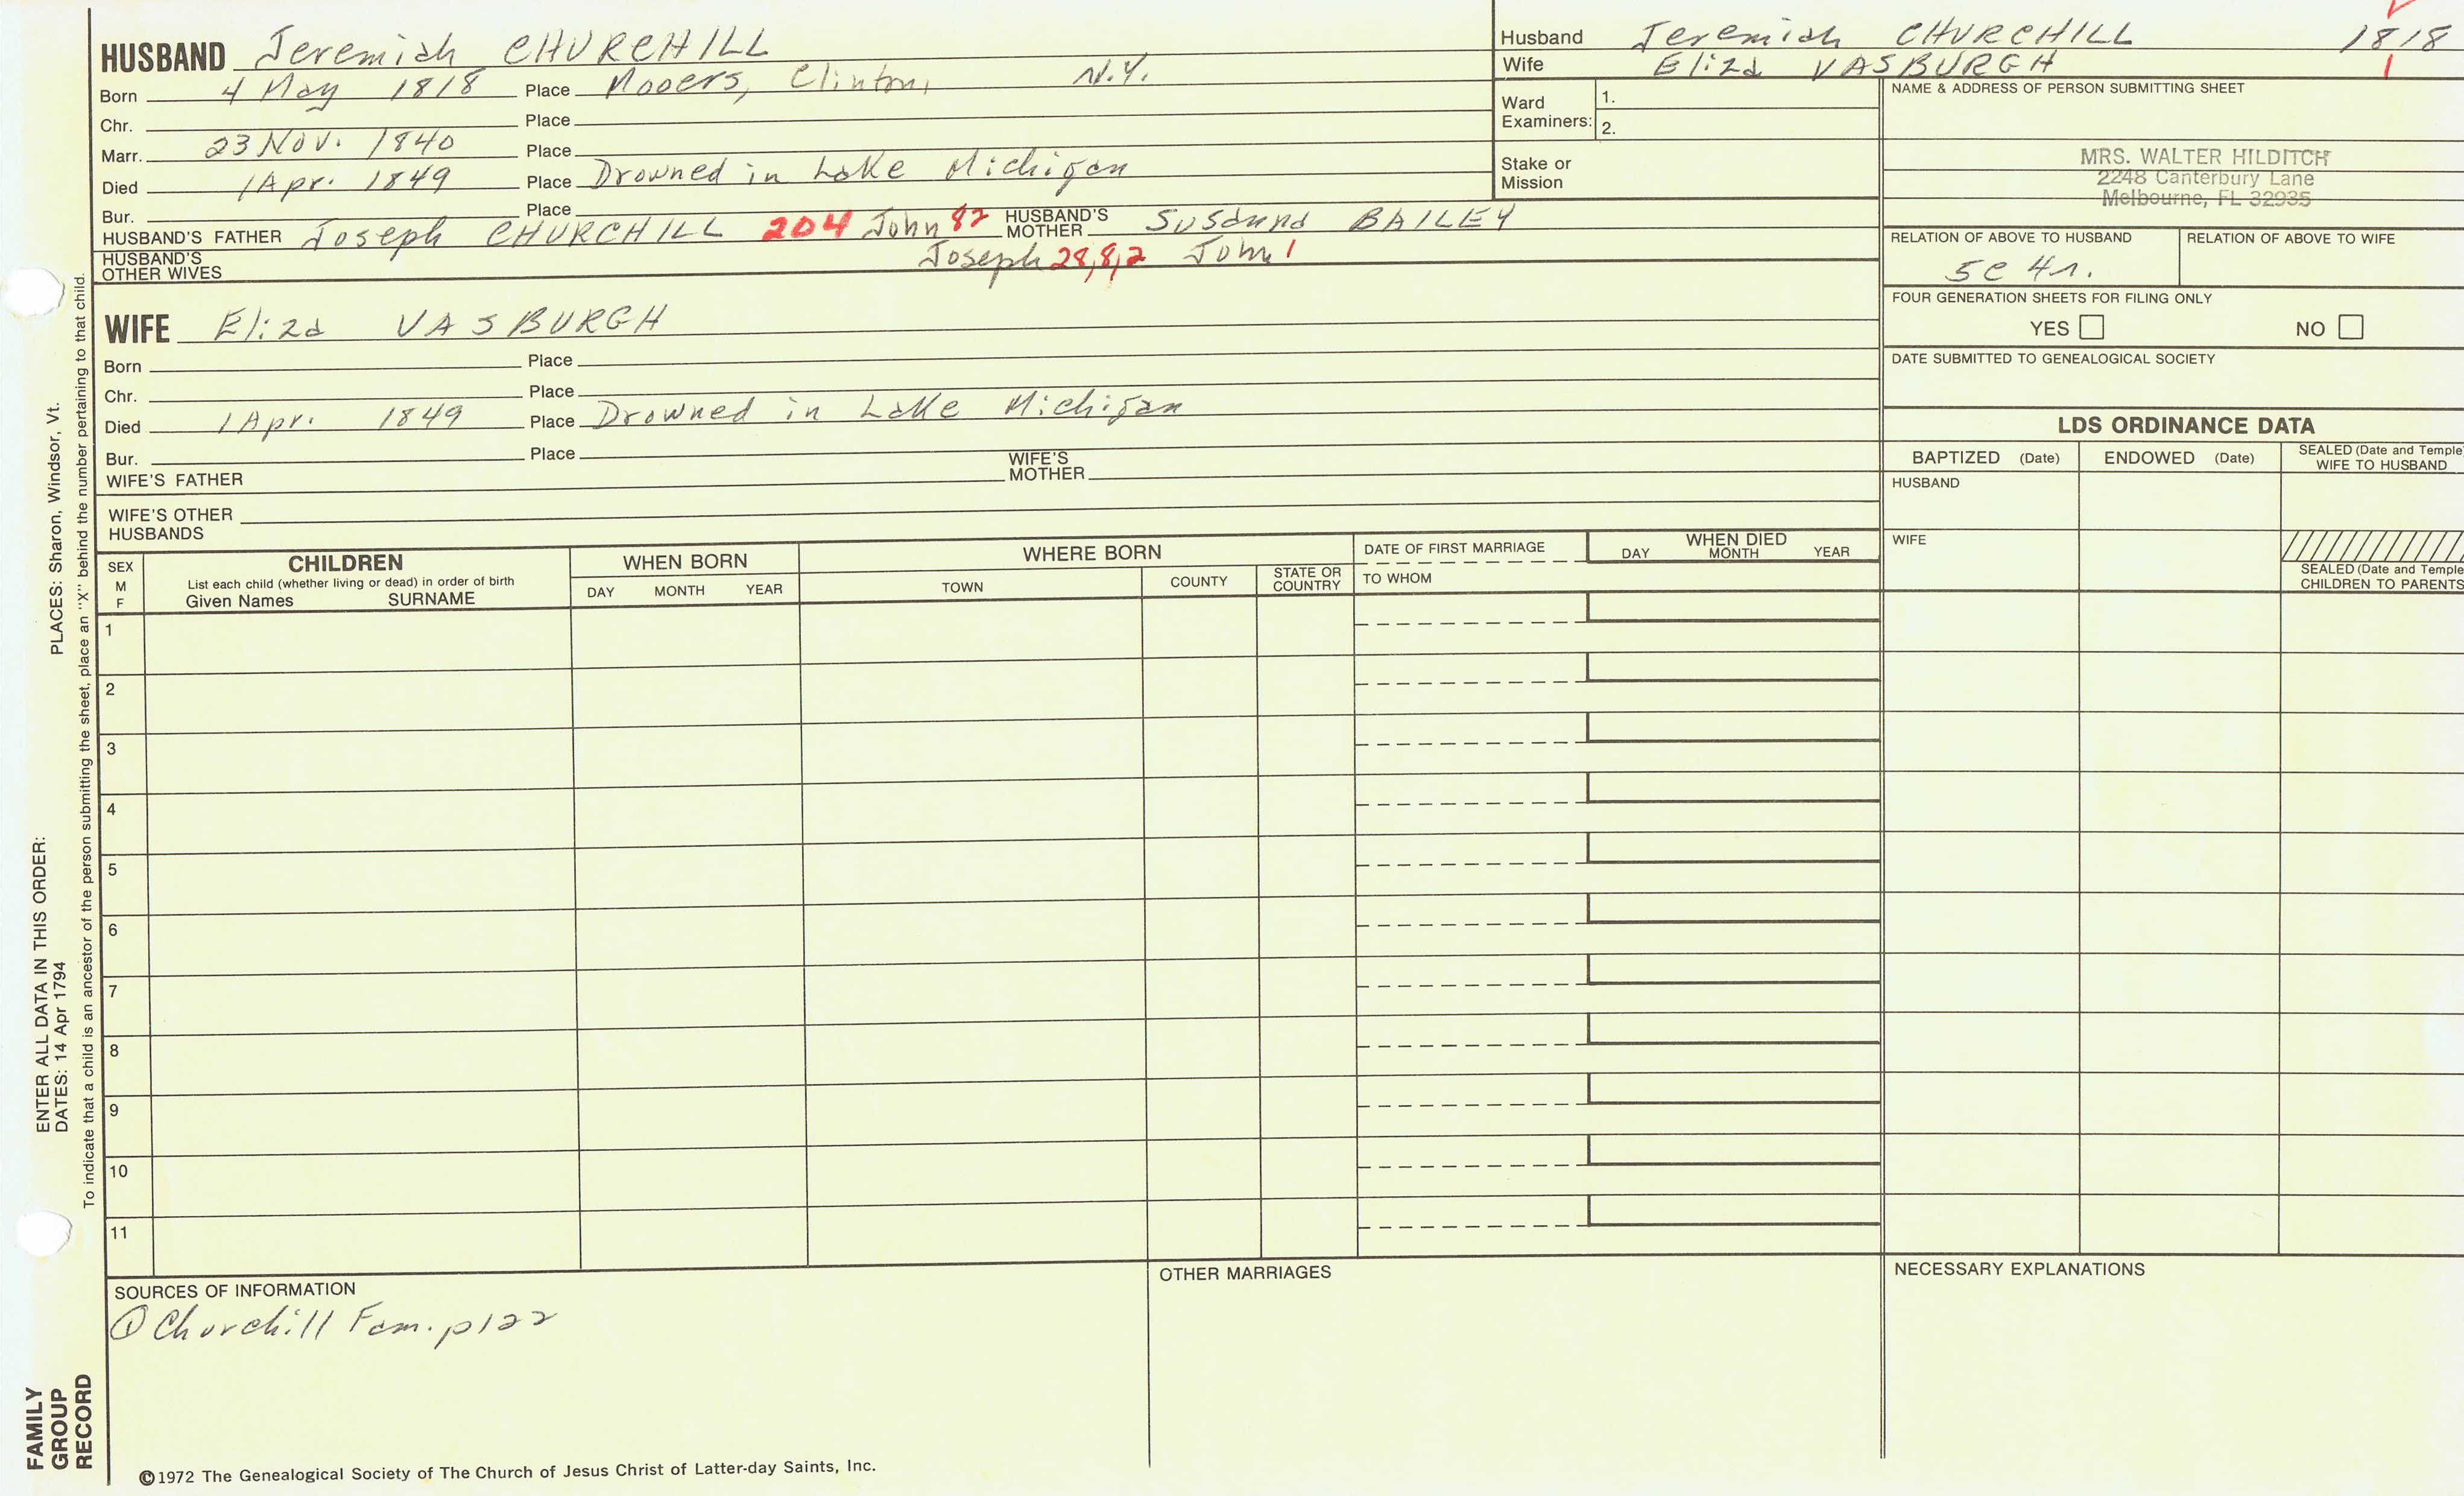 HUSBAND Jeremiah CHURCHILL
Born 4 May 1818 Place Mooers, Clinton, N.Y.
Chr. Place
Marr. 23 Nov. 1840 Place
Died 1 Apr. 1849 Place Drowned in Lake Michigan
Bur. Place
HUSBAND'S FATHER Joseph CHURCHILL 204 John 82 HUSBAND'S MOTHER Susanna BAILEY
HUSBAND'S OTHER WIVES Joseph 28,8,2 John 1
Husband Jeremiah CHURCHILL 1818
Wife Eliza VASBURGH 1
Ward Examiners: 1.
2.
Stake or Mission
NAME & ADDRESS OF PERSON SUBMITTING SHEET
MRS. WALTER HILDITCH
2248 Canterbury Lane
Melbourne, FL 32935
RELATION OF ABOVE TO HUSBAND RELATION OF ABOVE TO WIFE
5C 4r.
FOUR GENERATION SHEETS FOR FILING ONLY
YES NO
DATE SUBMITTED TO GENEALOGICAL SOCIETY
WIFE Eliza VASBURGH
Born Place
Chr. Place
Died 1 Apr. 1849 Place Drowned in Lake Michigan
Bur. Place
WIFE'S FATHER WIFE'S MOTHER
WIFE'S OTHER HUSBANDS
LDS ORDINANCE DATA
BAPTIZED (Date) ENDOWED (Date) SEALED (Date and Temple) WIFE TO HUSBAND
HUSBAND
WIFE
SEALED (Date and Temple) CHILDREN TO PARENTS
SEX M F
CHILDREN
List each child (whether living or dead) in order of birth
Given Names SURNAME
WHEN BORN
DAY MONTH YEAR
WHERE BORN
TOWN COUNTY STATE OR COUNTRY
DATE OF FIRST MARRIAGE
TO WHOM
WHEN DIED
DAY MONTH YEAR
1
2
3
4
5
6
7
8
9
10
11
SOURCES OF INFORMATION
① Churchill Fam. p122
OTHER MARRIAGES
NECESSARY EXPLANATIONS
©1972 The Genealogical Society of The Church of Jesus Christ of Latter-day Saints, Inc.
FAMILY GROUP RECORD
ENTER ALL DATA IN THIS ORDER:
DATES: 14 Apr 1794 PLACES: Sharon, Windsor, Vt.
To indicate that a child is an ancestor of the person submitting the sheet, place an "X" behind the number pertaining to that child.